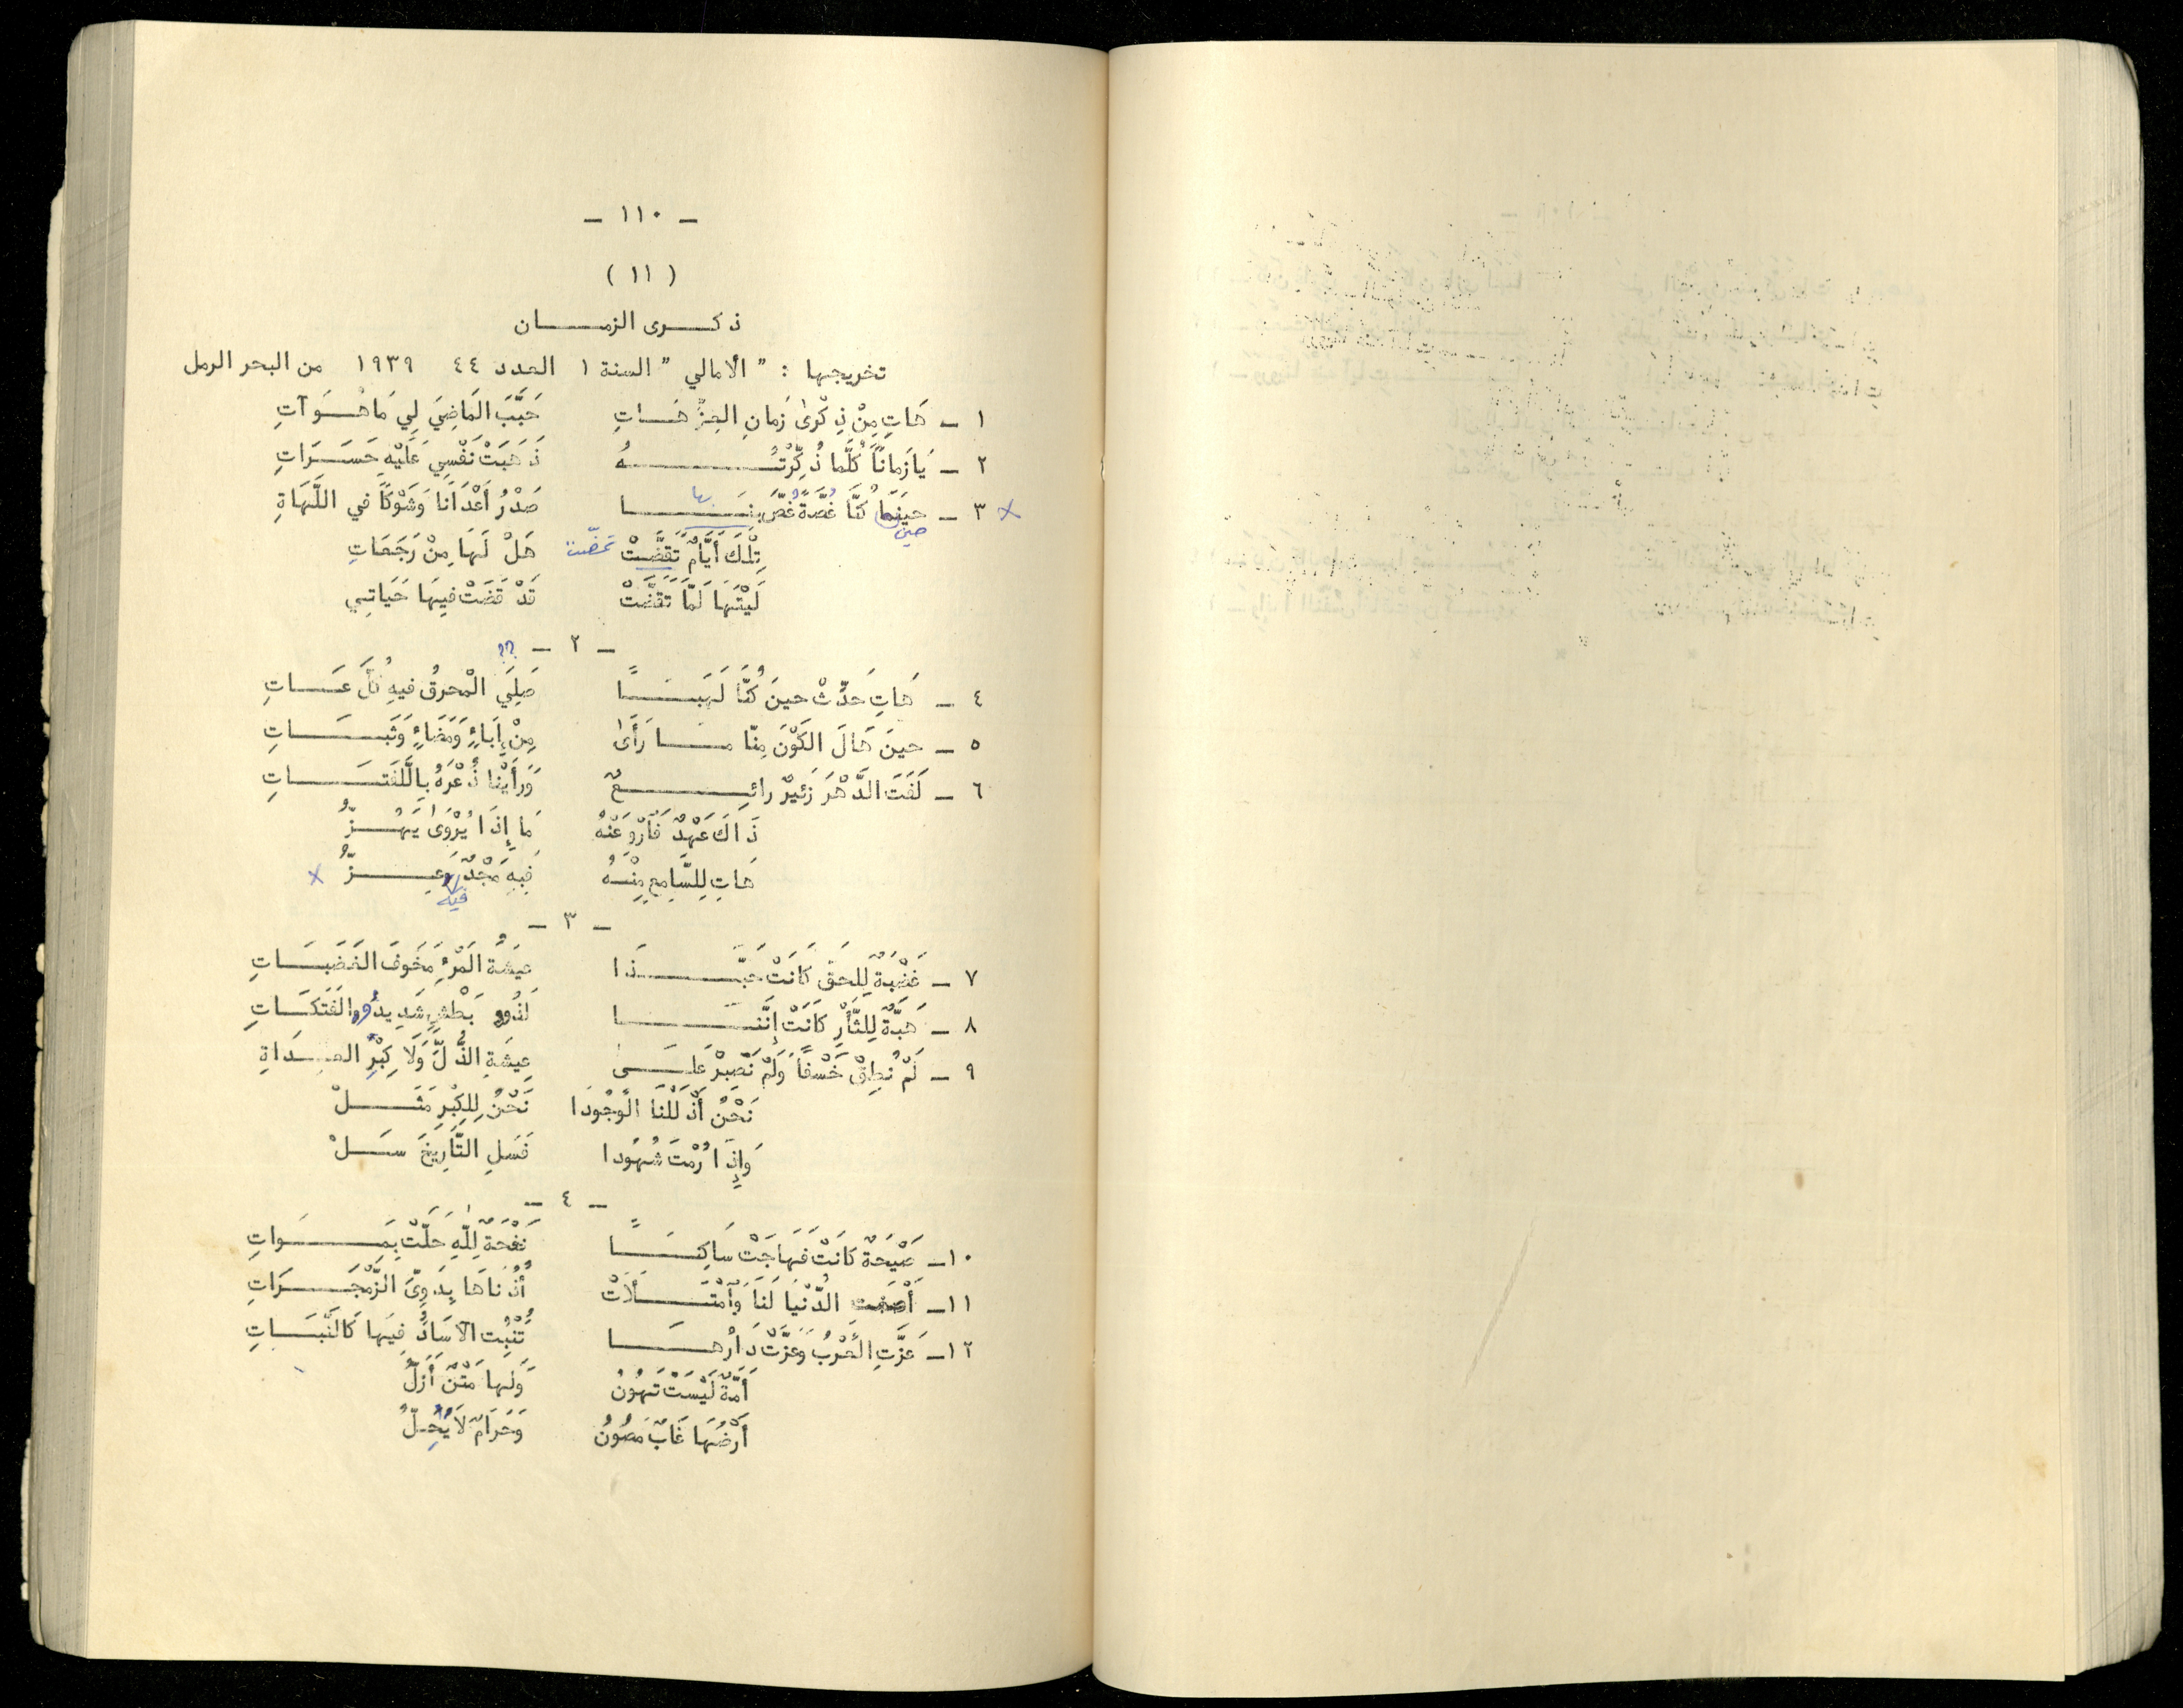 - ١١٠ -
( ١١ )
ذكرى الزمان
تخريجها : " الأمالي " السنة ١ العدد ٤٤ ١٩٣٩ من البحر الرمل
١ - هَاتِ مِنْ ذِكْرىٰ زَمانِ العِزِّ هَاتِ حَبَّبَ المَاضِيَ لِي مَا هُوَ آتِ
٢ - يَا زَمانًا كُلَّما ذُكِّرْتُهُ ذَهَبَتْ نَفْسِي عَلَيْهِ حَسَرَاتِ
بها
× ٣ - حينَمَا كُنَّا غُصَّةً غُصَّ بِنَا صَدْرُ أَعْدَانَا وَشَوْكًا في اللَّهَاةِ
حين
تِلْكَ أَيَّامٌ تَقَضَّتْ تمضّت هَلْ لَهَا مِنْ رَجَعَاتِ
لَيْتَهَا لَمَّا تَقَضَّتْ قَدْ قَضَتْ فيهَا حَيَاتِي
- ٢ - ؟؟
٤ - هَاتِ حَدِّثْ حينَ كُنَّا لَهَبًا صَلِيَ الْمحرقُ فيهِ كُلَّ عَاتِ
٥ - حينَ هَالَ الكَوْنَ مِنّا مَا رَأَىٰ مِنْ إِبَاءٍ وَمَضَاءٍ وَثَبَاتِ
٦ - لَفَتَ الدَّهْرَ زَئيرٌ رائِعٌ وَرَأَيْنا ذُعْرَهُ بِاللَّفَتَاتِ
ذَاكَ عَهْدٌ فَارْوِ عَنْهُ مَا إِذَا يُرْوَىٰ يَهُزُّ
هَاتِ لِلسَّامِعِ مِنْهُ فيهِ مَجْدٌ وَعِزُّ ×
فيه
- ٣ -
٧ - غَضْبَةٌ لِلحَقِّ كَانَتْ حَبَّذَا عِيشَةُ المَرْءِ مَخَوفَ الغَضَبَاتِ
٨ - هَبَّةٌ لِلثَّأْرِ كَانَتْ إِنَّنَا لَذُوو بَطْشٍ شَدِيدُو الفَتَكَاتِ
٩ - لَمْ نُطِقْ خَسْفًا وَلَمْ نَصْبِرْ عَلَىٰ عِيشَةِ الذُّلِّ وَلَا كِبْرِ العِدَاةِ
نَحْنُ أَذْلَلْنَا الوُجُودَا نَحْنُ لِلكِبْرِ مَثَلْ
وَإِذَا رُمْتَ شُهُودا فَسَلِ التَّارِيخَ سَلْ
- ٤ -
١٠ - صَيْحَةٌ كَانَتْ فَهَاجَتْ سَاكِنًا نَفْحَةٌ لِلّٰهِ حَلَّتْ بِمَوَاتِ
١١ - أَصْغَتِ الدُّنْيَا لَنَا وَامْتَلَأَتْ أُذْنَاهَا بِدَوِيِّ الزَّمْجَرَاتِ
١٢ - عَزَّتِ العُرْبُ وَعَزَّتْ دَارُهَا تُنْبِت الآسَادُ فِيهَا كَالنَّبَاتِ
أُمَّةٌ لَيْسَتْ تَهُونُ وَلَها مَتْنٌ أَزَلُّ
أَرْضُهَا غَابٌ مَصُونُ وَحَرَامٌ لَا يُحِلُّ